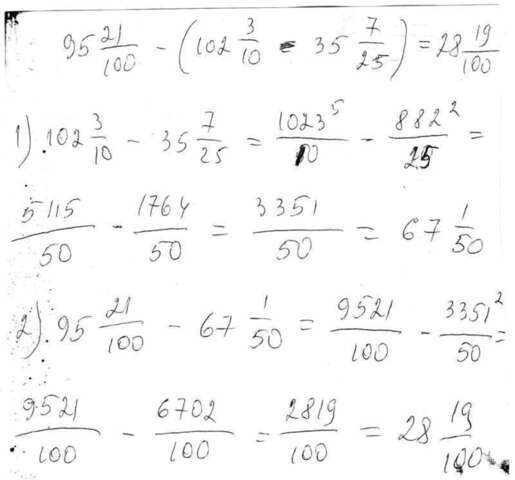 95 21/100 - (102 3/10 - 35 7/25) = 28 19/100
1) 102 3/10 - 35 7/25 = 1023⁵/10 - 882²/25 =
5115/50 - 1764/50 = 3351/50 = 67 1/50
2) 95 21/100 - 67 1/50 = 9521/100 - 3351²/50 =
9521/100 - 6702/100 = 2819/100 = 28 19/100